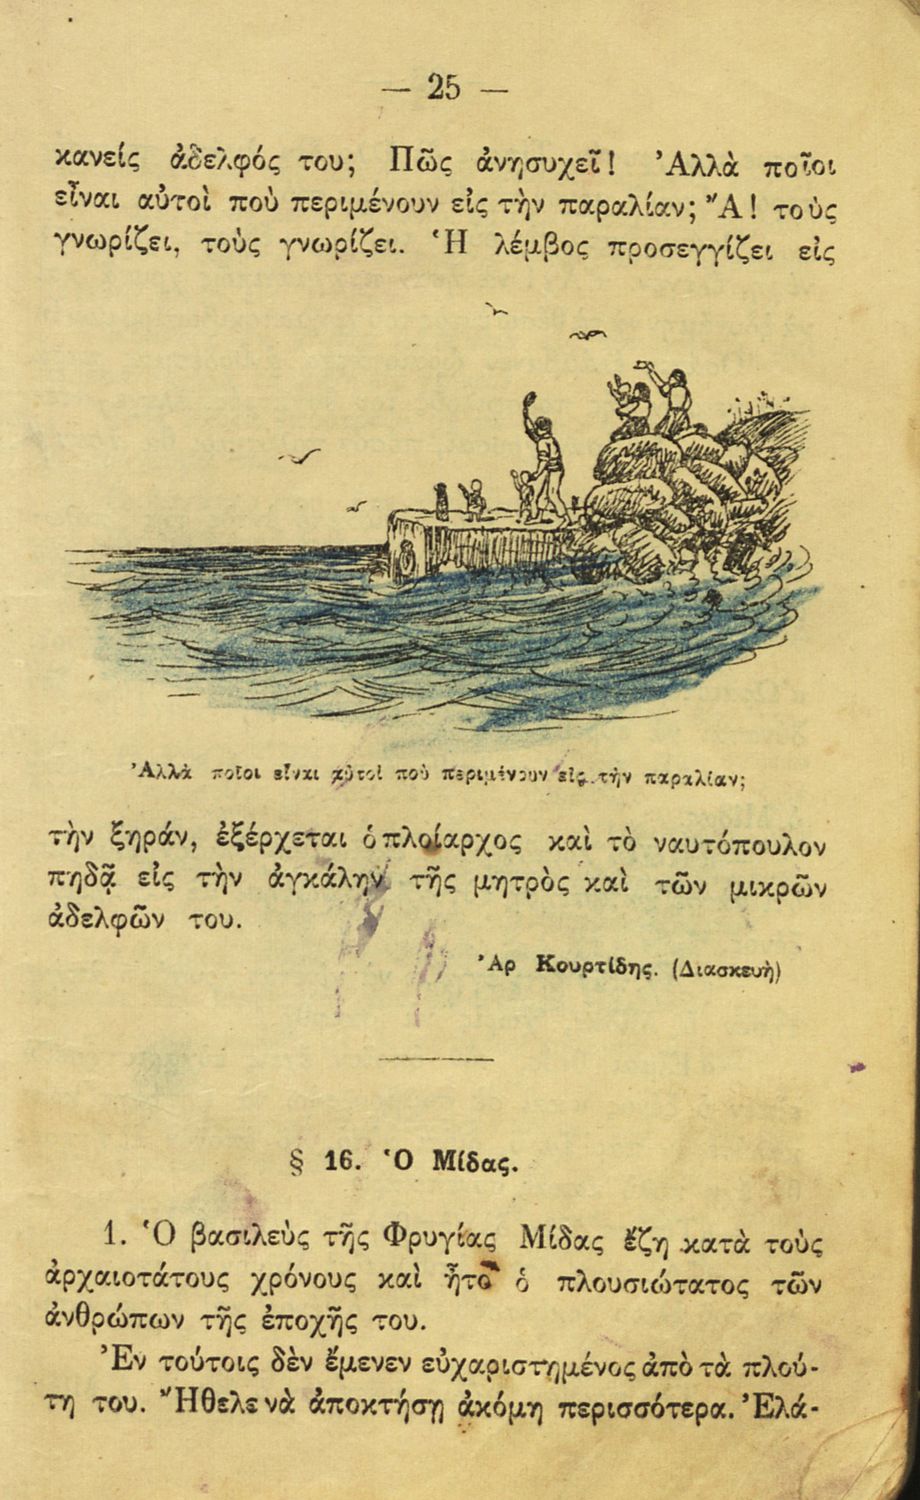 — 25 —
κανείς ἀδελφός του; Πῶς ἀνησυχεῖ! Ἀλλὰ ποῖοι
εἶναι αὐτοὶ ποὺ περιμένουν εἰς τὴν παραλίαν; Ἄ! τοὺς
γνωρίζει, τοὺς γνωρίζει. Ἡ λέμβος προσεγγίζει εἰς
Ἀλλὰ ποῖοι εἶναι αὐτοὶ ποὺ περιμένουν εἰς τὴν παραλίαν;
τὴν ξηράν, ἐξέρχεται ὁ πλοίαρχος καὶ τὸ ναυτόπουλον
πηδᾷ εἰς τὴν ἀγκάλην τῆς μητρὸς καὶ τῶν μικρῶν
ἀδελφῶν του.
Ἀρ Κουρτίδης. (Διασκευὴ)
§ 16. Ὁ Μίδας.
1. Ὁ βασιλεὺς τῆς Φρυγίας Μίδας ἔζη κατὰ τοὺς
ἀρχαιοτάτους χρόνους καὶ ἦτο ὁ πλουσιώτατος τῶν
ἀνθρώπων τῆς ἐποχῆς του.
Ἐν τούτοις δὲν ἔμενεν εὐχαριστημένος ἀπὸ τὰ πλού-
τη του. Ἤθελε νὰ ἀποκτήσῃ ἀκόμη περισσότερα. Ἐλά-